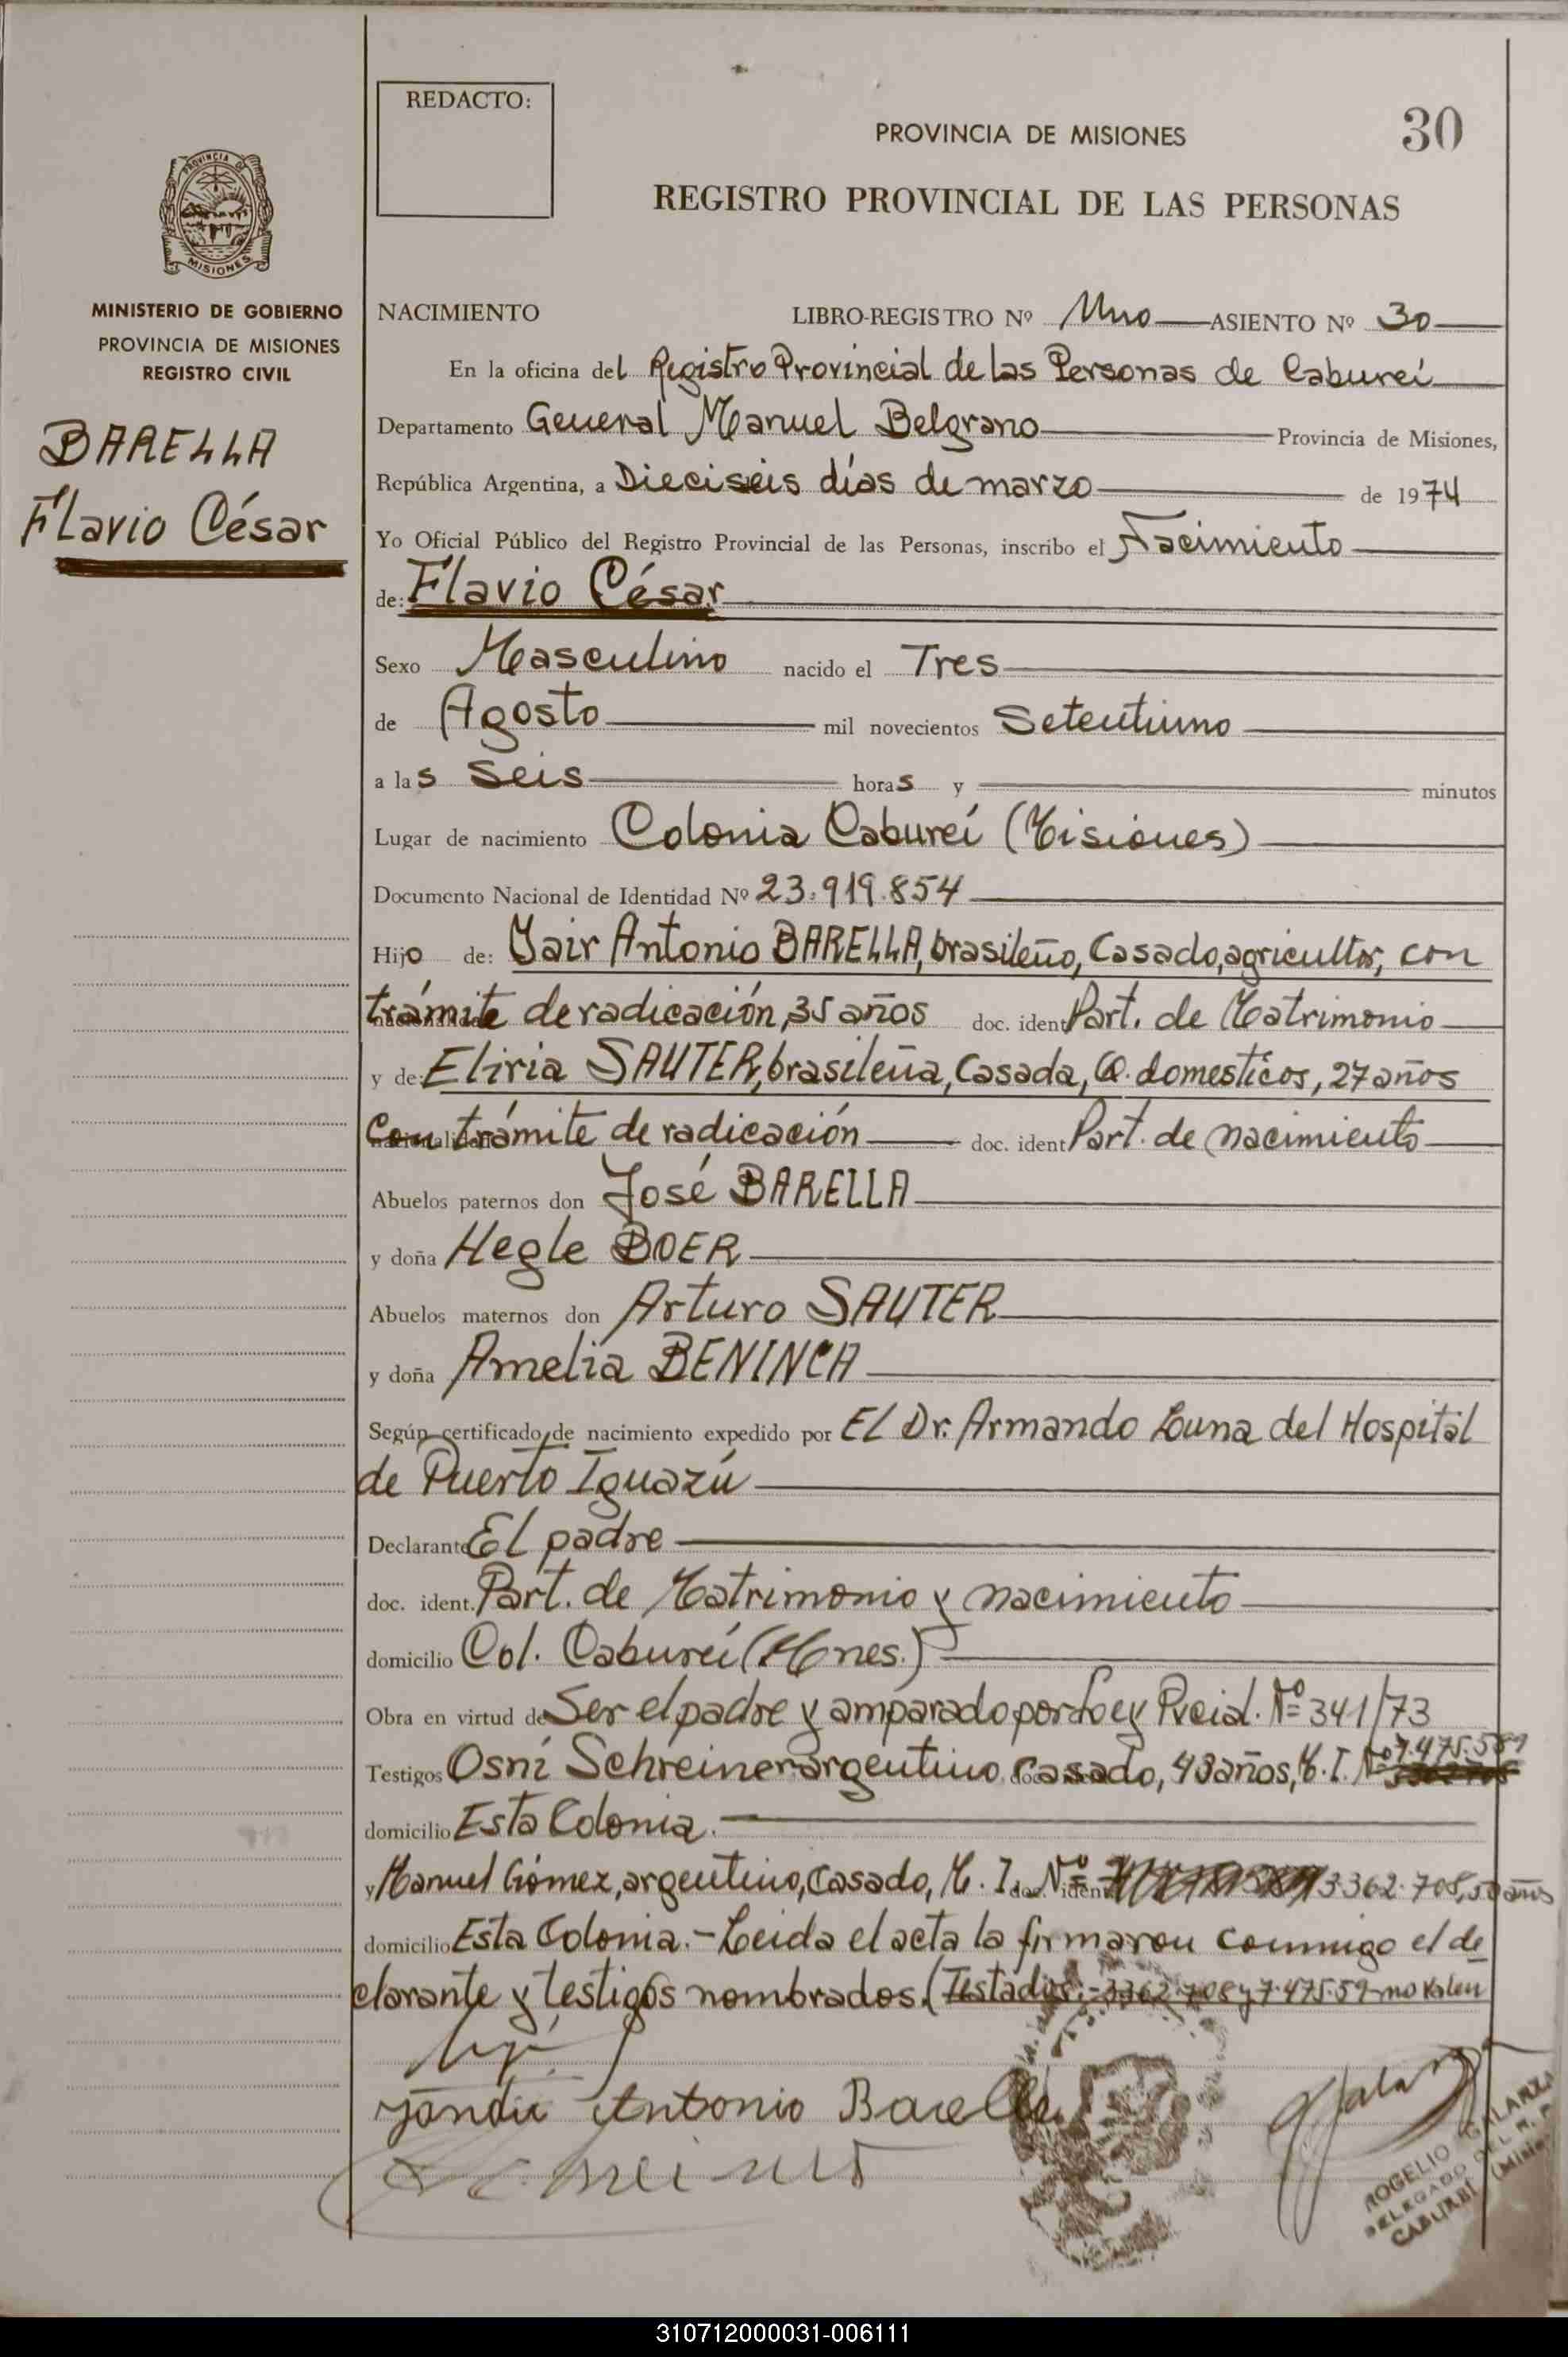 REDACTO:
PROVINCIA DE MISIONES
30
REGISTRO PROVINCIAL DE LAS PERSONAS
PROVINCIA DE
MISIONES
MINISTERIO DE GOBIERNO
PROVINCIA DE MISIONES
REGISTRO CIVIL
BARELLA
Flavio César
NACIMIENTO LIBRO-REGISTRO Nº Uno ASIENTO Nº 30
En la oficina del Registro Provincial de las Personas de Caburei
Departamento General Manuel Belgrano Provincia de Misiones,
República Argentina, a Dieciseis días de marzo de 1974
Yo Oficial Público del Registro Provincial de las Personas, inscribo el Nacimiento
de: Flavio César
Sexo Masculino nacido el Tres
de Agosto mil novecientos Setentiuno
a las Seis horas y minutos
Lugar de nacimiento Colonia Caburei (Misiones)
Documento Nacional de Identidad Nº 23.919.854
Hijo de: Yair Antonio BARELLA, brasileño, Casado, agricultor, con
trámite de radicación, 35 años doc. ident Part. de Matrimonio
y de: Eliria SAUTER, brasileña, Casada, Q. domesticos, 27 años
Con trámite de radicación doc. ident Part. de nacimiento
Abuelos paternos don José BARELLA
y doña Hegle BOER
Abuelos maternos don Arturo SAUTER
y doña Amelia BENINCA
Según certificado de nacimiento expedido por El Dr. Armando Luna del Hospital
de Puerto Iguazú
Declarante El padre
doc. ident. Part. de Matrimonio y nacimiento
domicilio Col. Caburei (Mnes.)
Obra en virtud de Ser el padre y amparado por Ley Pvcial. Nº 341/73
Testigos Osni Schreiner argentino, Casado, 43 años, M. I. Nº 7.475.589
domicilio Esta Colonia.
y Manuel Gómez, argentino, Casado, M. I. Nº 3362.708, 50 años
domicilio Esta Colonia.- Leida el acta la firmaron conmigo el de
clarante y testigos nombrados. (Testados:- 3362.708 y 7.475.59 no valen
Antonio Barella
ROGELIO GALARZA
DELEGADO DEL R. P.
CABUREI (Misiones
310712000031-006111